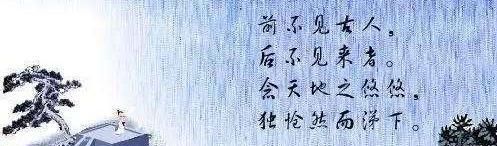 前不见古人，
后不见来者。
念天地之悠悠，
独怆然而涕下。